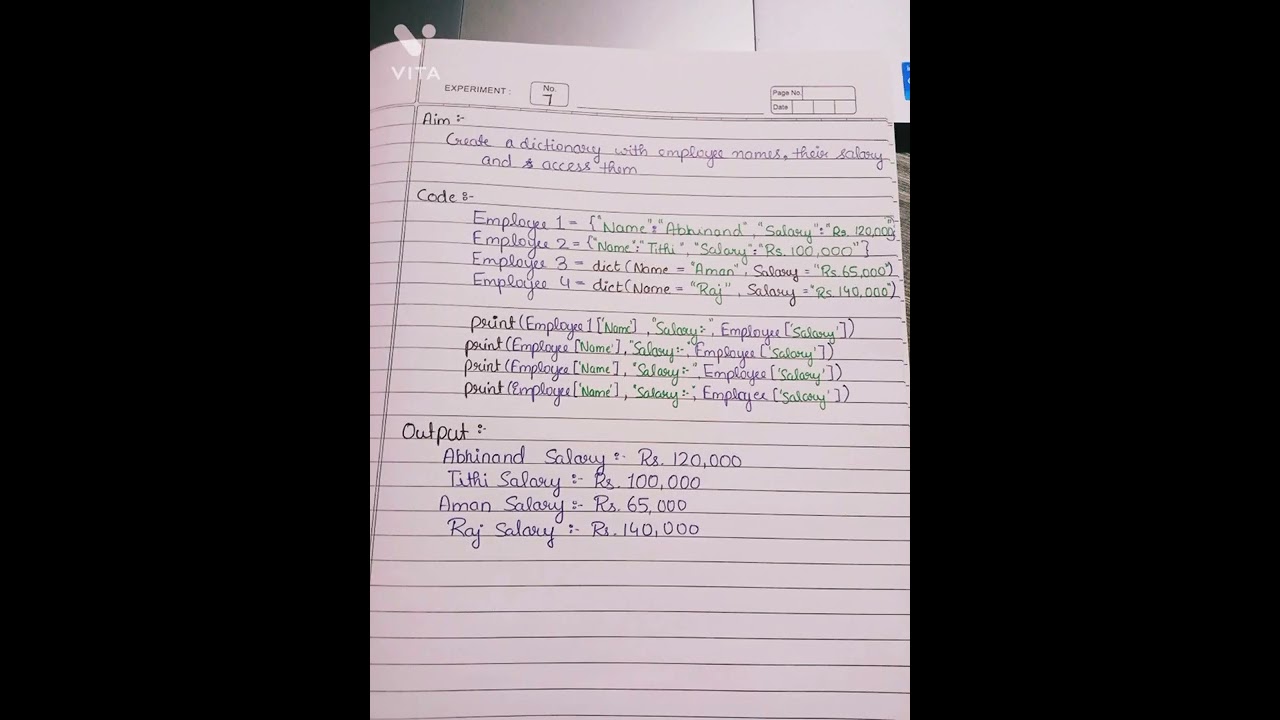 VITA
EXPERIMENT :
No.
7
Page No.
Date
Aim :-
Create a dictionary with employee names, their salary
and access them
Code :-
Employee 1 = {"Name":"Abhinand", "Salary":"Rs. 120,000"}
Employee 2 = {"Name":"Tithi", "Salary":"Rs. 100,000"}
Employee 3 = dict(Name = "Aman", Salary = "Rs 65,000")
Employee 4 = dict(Name = "Raj", Salary = "Rs. 140,000")
print(Employee1['Name'], "Salary:-", Employee['Salary'])
print(Employee['Name'], "Salary:-", Employee['Salary'])
print(Employee['Name'], "Salary:-", Employee['Salary'])
print(Employee['Name'], "Salary:-", Employee['Salary'])
Output :-
Abhinand Salary :- Rs. 120,000
Tithi Salary :- Rs. 100,000
Aman Salary :- Rs. 65,000
Raj Salary :- Rs. 140,000